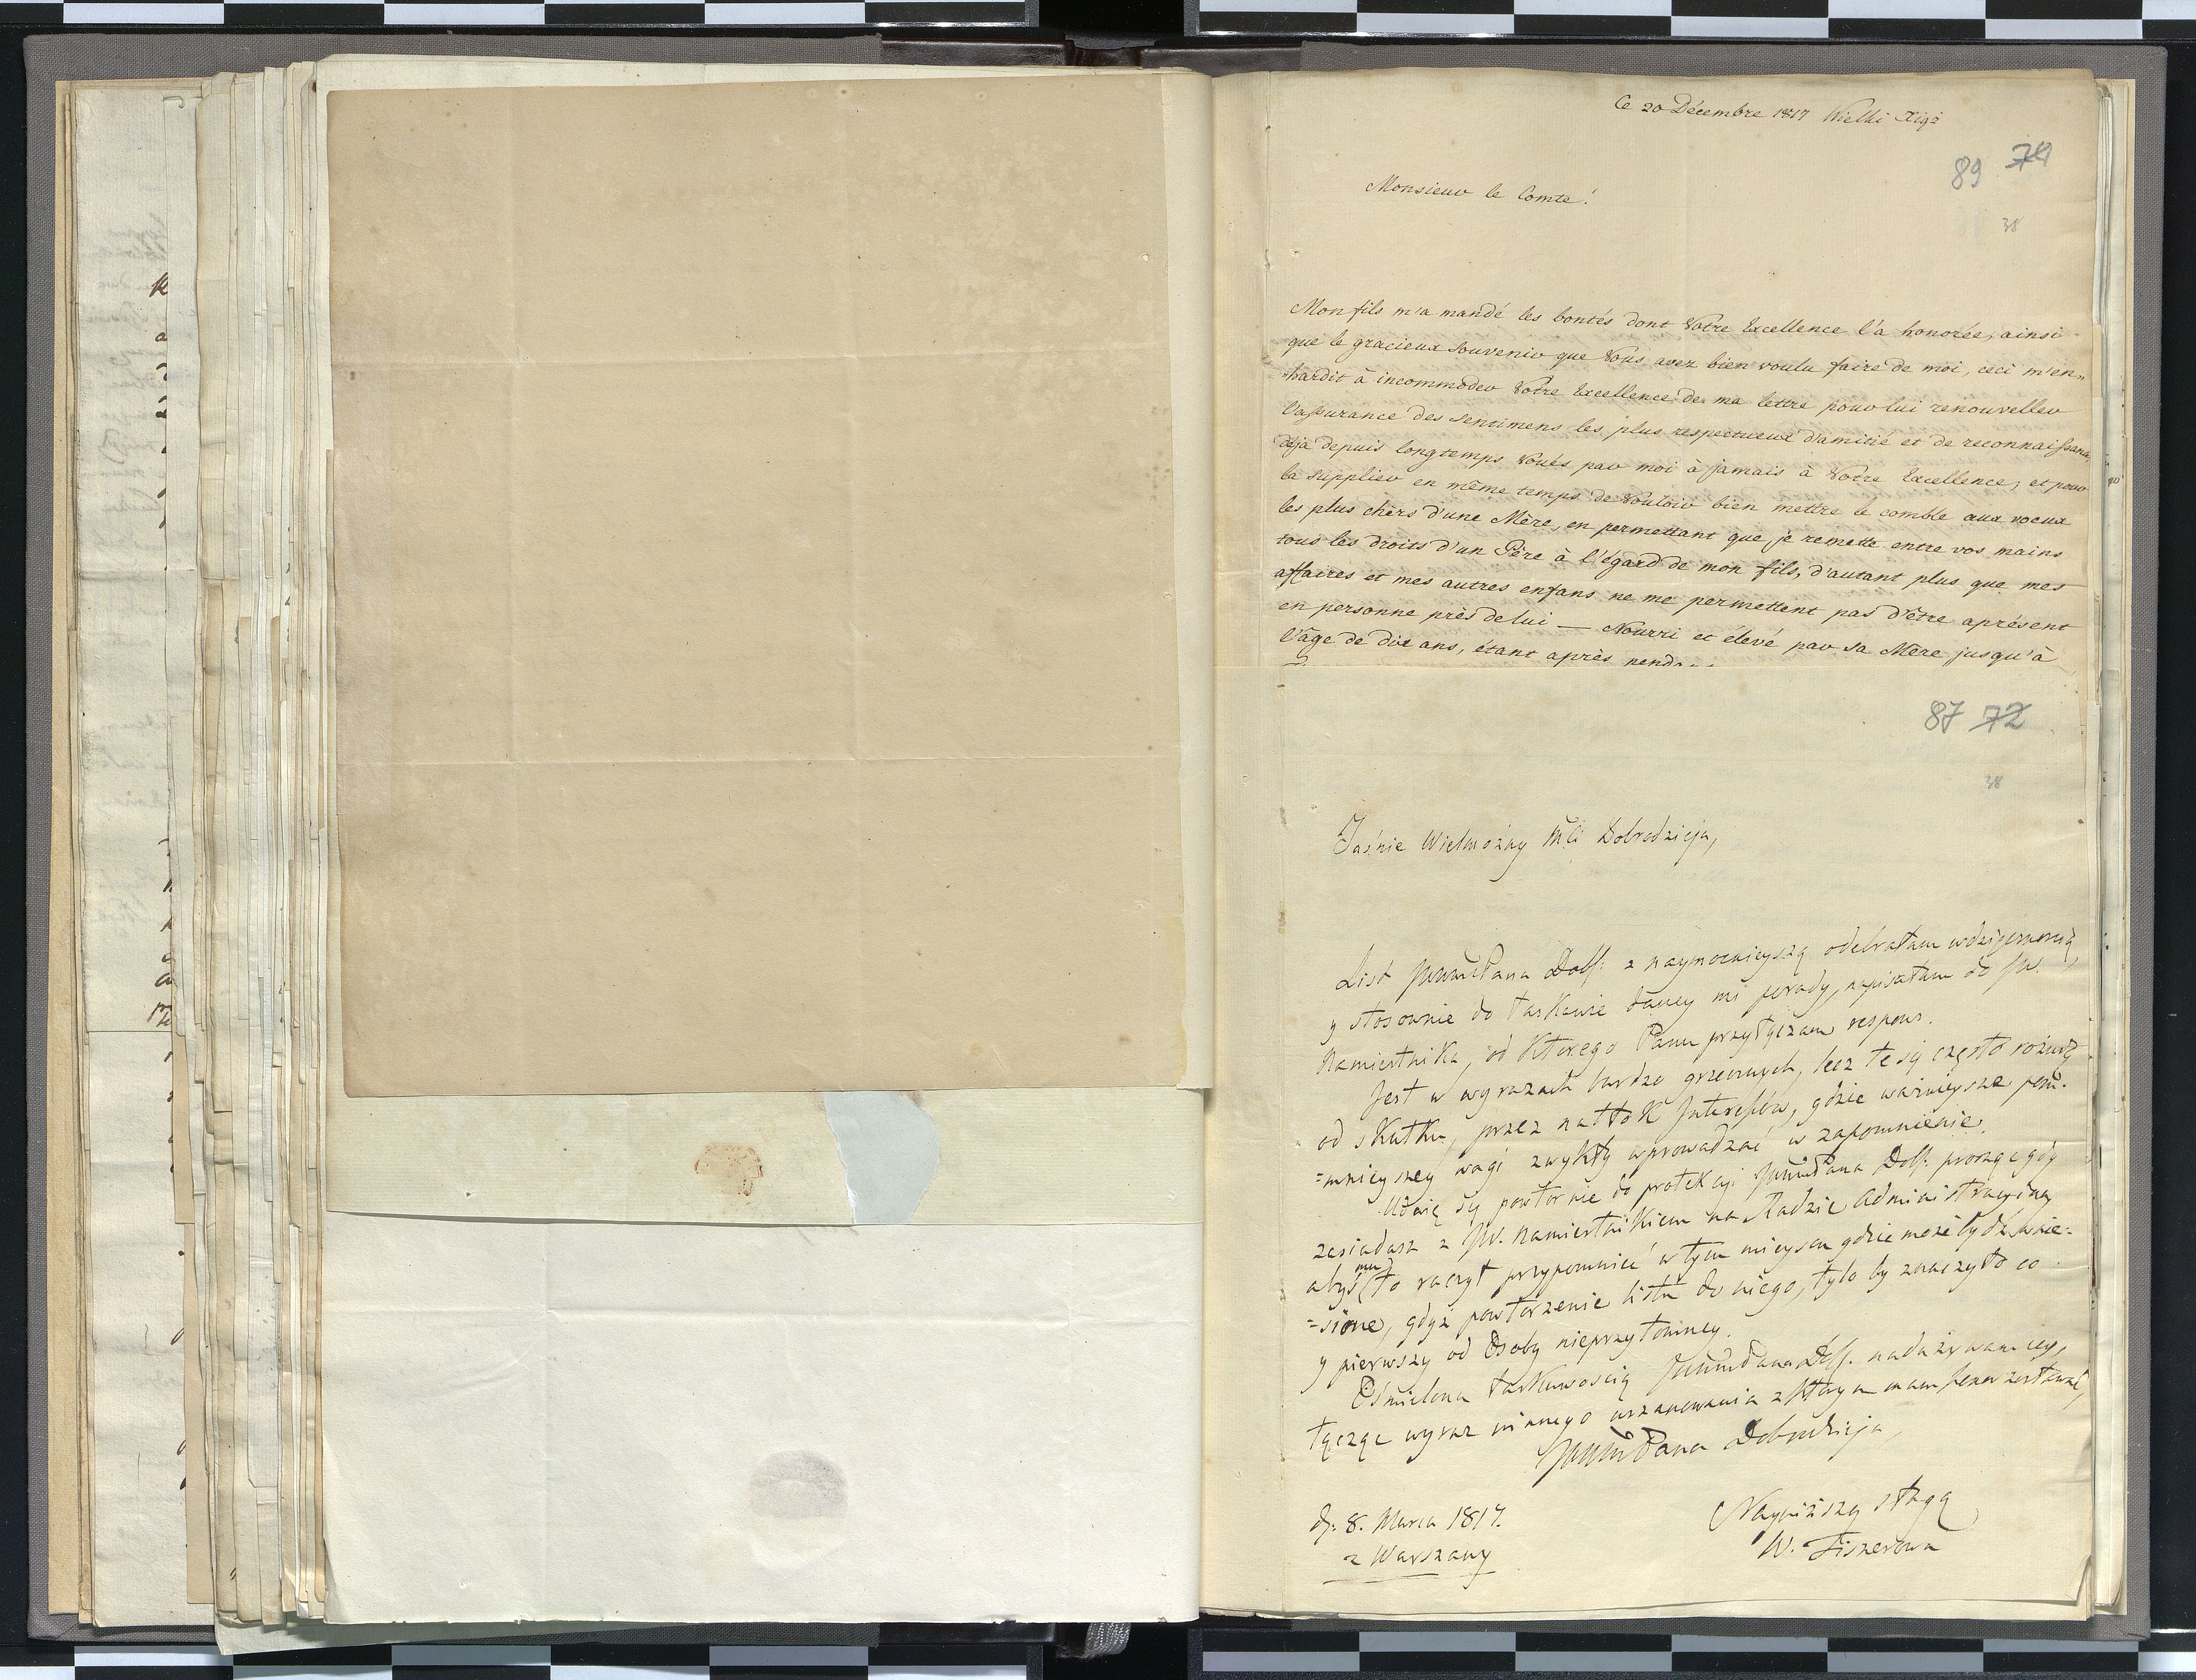 Ce 20 Décembre 1817 Wielki Xiąż
89 74
Monsieur le Comte!
38
Mon fils m'a mandé les bontés dont Votre Excellence l'a honorée, ainsi
que le gracieux souvenir que Vous avez bien voulu faire de moi, ceci m'en„
hardit à incommoder Votre Excellence de ma lettre pour lui renouveller
l'assurance des sentimens les plus respectueux d'amitié et de reconnaissance,
déja depuis longtemps voués par moi à jamais à Votre Excellence, et pour
la supplier en même temps de vouloir bien mettre le comble aux voeux
les plus chèrs d'une Mère, en permettant que je remette entre vos mains
tous les droits d'un Père à l'égard de mon fils, d'autant plus que mes
affaires et mes autres enfans ne me permettent pas d'être aprésent
en personne près de lui — Nourri et élevé par sa Mère jusqu'à
l'âge de dix ans, étant après
87 72
38
Jaśnie Wielmożny Mći Dobrodzieja,
List JWWMPana Dobr: z naymocnieyszą odebrałam wdzięcznością,
y stosownie do łaskawie daney mi porady, napisałam do JW.
Namiestnika, od którego Panu przyłączam respons.
Jest w wyrazach bardzo grzecznych, lecz te są często różne
od skutku, przez natłok Interessów, gdzie ważnieysze
=mnieyszey wagi zwykły wprowadzać w zapomnienie.
Udaię się powtornie do protekcyi JWWMPana Dobr: prosząc gdy
zasiadasz z JW. Namiestnikiem na Radzie Administracyiney
abyś mu to raczył przypomnieć w tym mieyscu gdzie może bydź wnie=
=sione, gdyż powtorzenie listu do niego, tyle by znaczyło co
y pierwszy od Osoby nieprzytomney.
Ośmielona łaskawością JWWMPana Dobr. nadużywam iey,
łącząc wyraz winnego uszanowania z którym mam honor zostawać,
JWWMPana Dobrodzieja
Nayniższą sługą
W. Fiszerowa
d: 8. Marca 1817.
z Warszawy